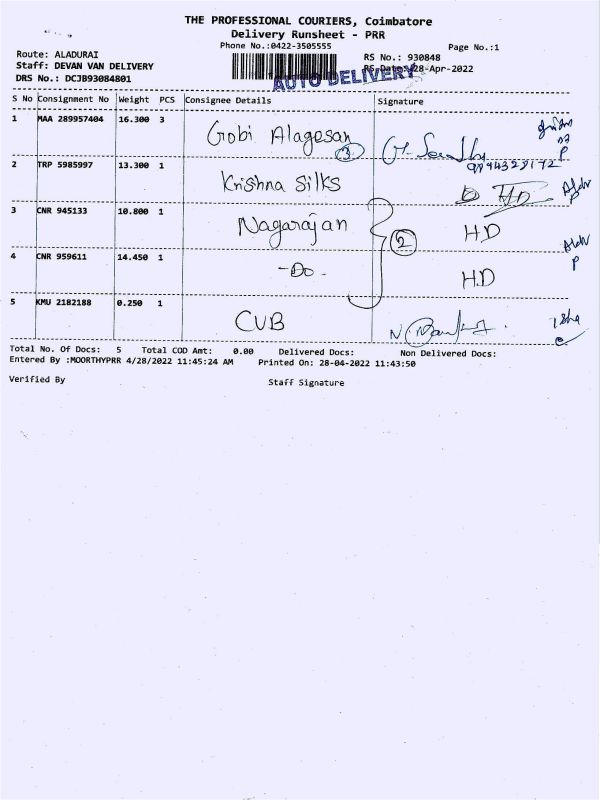 THE PROFESSIONAL COURIERS, Coimbatore
Delivery Runsheet - PRR
Phone No.:0422-3505555
Page No.:1
Route: ALADURAI
RS No.: 930848
Staff: DEVAN VAN DELIVERY
RS Date: 28-Apr-2022
DRS No.: DCJB93084801
AUTO DELIVERY
S No Consignment No Weight PCS Consignee Details Signature
1 MAA 289957404 16.300 3
Gobi Alagesan
3
2 TRP 5985997 13.300 1
Krishna Silks HD
3 CNR 945133 10.800 1
Nagarajan HD
2
4 CNR 959611 14.450 1
-Do- H.D
5 KMU 2182188 0.250 1
CUB
Total No. Of Docs: 5 Total COD Amt: 0.00 Delivered Docs: Non Delivered Docs:
Entered By :MOORTHYPRR 4/28/2022 11:45:24 AM Printed On: 28-04-2022 11:43:50
Verified By Staff Signature